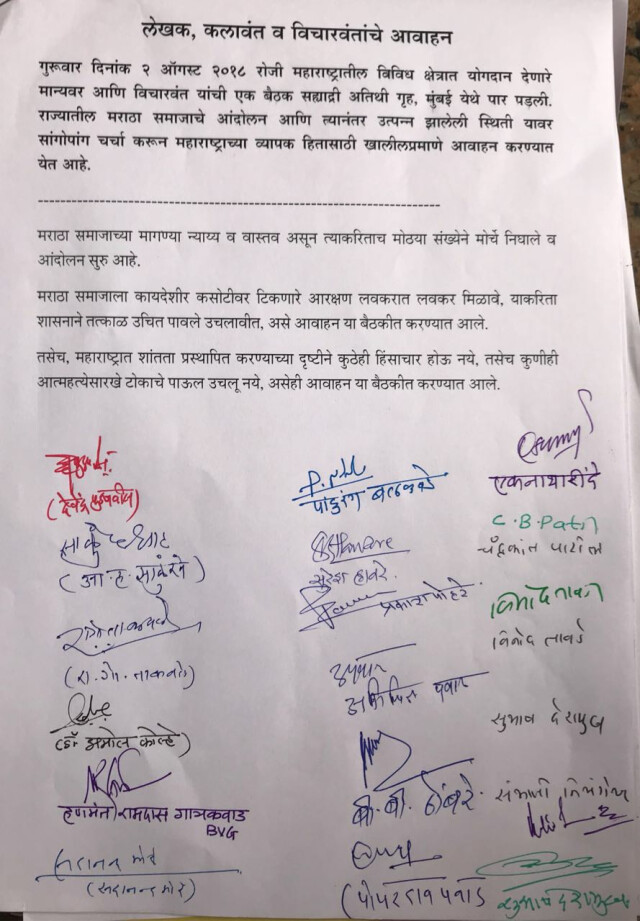 लेखक, कलावंत व विचारवंतांचे आवाहन
गुरूवार दिनांक २ ऑगस्ट २०१८ रोजी महाराष्ट्रातील विविध क्षेत्रात योगदान देणारे
मान्यवर आणि विचारवंत यांची एक बैठक सह्याद्री अतिथी गृह, मुंबई येथे पार पडली.
राज्यातील मराठा समाजाचे आंदोलन आणि त्यानंतर उत्पन्न झालेली स्थिती यावर
सांगोपांग चर्चा करून महाराष्ट्राच्या व्यापक हितासाठी खालीलप्रमाणे आवाहन करण्यात
येत आहे.
मराठा समाजाच्या मागण्या न्याय्य व वास्तव असून त्याकरिताच मोठया संख्येने मोर्चे निघाले व
आंदोलन सुरु आहे.
मराठा समाजाला कायदेशीर कसोटीवर टिकणारे आरक्षण लवकरात लवकर मिळावे, याकरिता
शासनाने तत्काळ उचित पावले उचलावीत, असे आवाहन या बैठकीत करण्यात आले.
तसेच, महाराष्ट्रात शांतता प्रस्थापित करण्याच्या दृष्टीने कुठेही हिंसाचार होऊ नये, तसेच कुणीही
आत्महत्येसारखे टोकाचे पाऊल उचलू नये, असेही आवाहन या बैठकीत करण्यात आले.
एकनाथ शिंदे
(देवेंद्र फडणवीस)
पांडुरंग बलकवडे
C.B.Patil
चंद्रकांत पाटील
(आ.ह. साळुंखे)
सुरेश हावरे.
प्रकाश पोहरे.
विनोद तावडे
विनोद तावडे
अभिजित पवार
सुभाष देशमुख
(डॉ अमोल कोल्हे)
बी.बी. ठोंबरे.
संभाजी निलंगेकर
हणमंत रामदास गायकवाड
BVG
सदानंद मोरे
(सदानन्द मोरे)
(पोपटराव पवार
सुभाष देशमुख